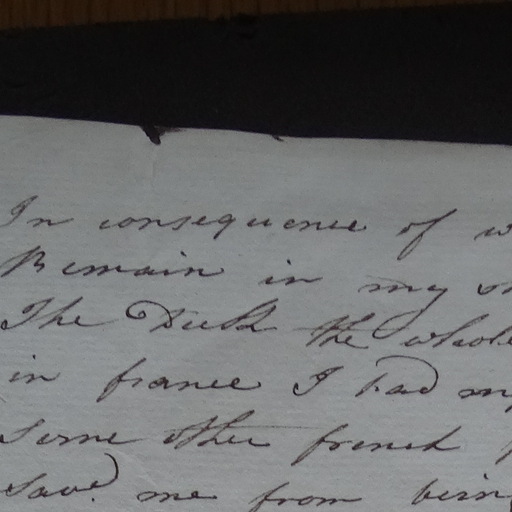 In consequence of w
Remain in my
The Duck the whole
in france I had my
Some other french
Save me from bein